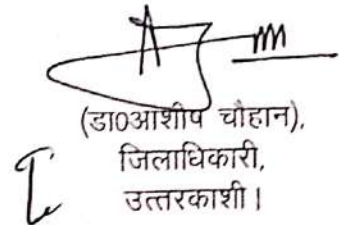 (डा0आशीष चौहान),
जिलाधिकारी,
उत्तरकाशी।